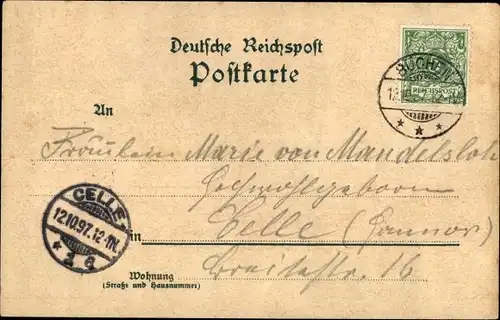 Deutsche Reichspost
Postkarte
BÜCHEN
REICHSPOST
An
Fräulein Marie von Mandelsloh
Hochwohlgeboren
CELLE
12.10.97.12-1N.
in Celle (Hannov)
Wohnung
(Straße und Hausnummer)
Breitestr. 16